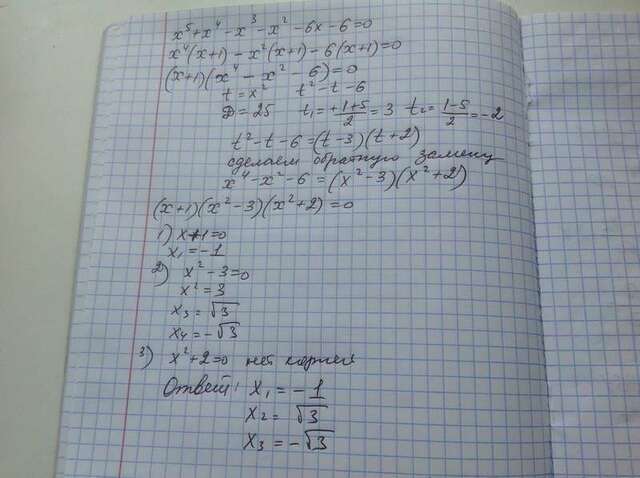 x⁵+x⁴-x³-x²-6x-6=0
x⁴(x+1)-x²(x+1)-6(x+1)=0
(x+1)(x⁴-x²-6)=0
t=x² t²-t-6
D=25 t₁=+1+5/2=3 t₂=1-5/2=-2
t²-t-6=(t-3)(t+2)
сделаем обратную замену
x⁴-x²-6=(x²-3)(x²+2)
(x+1)(x²-3)(x²+2)=0
1) x+1=0
x₁=-1
2) x²-3=0
x²=3
x₃=√3
x₄=-√3
3) x²+2=0 нет корней
Ответ: x₁=-1
x₂=√3
x₃=-√3